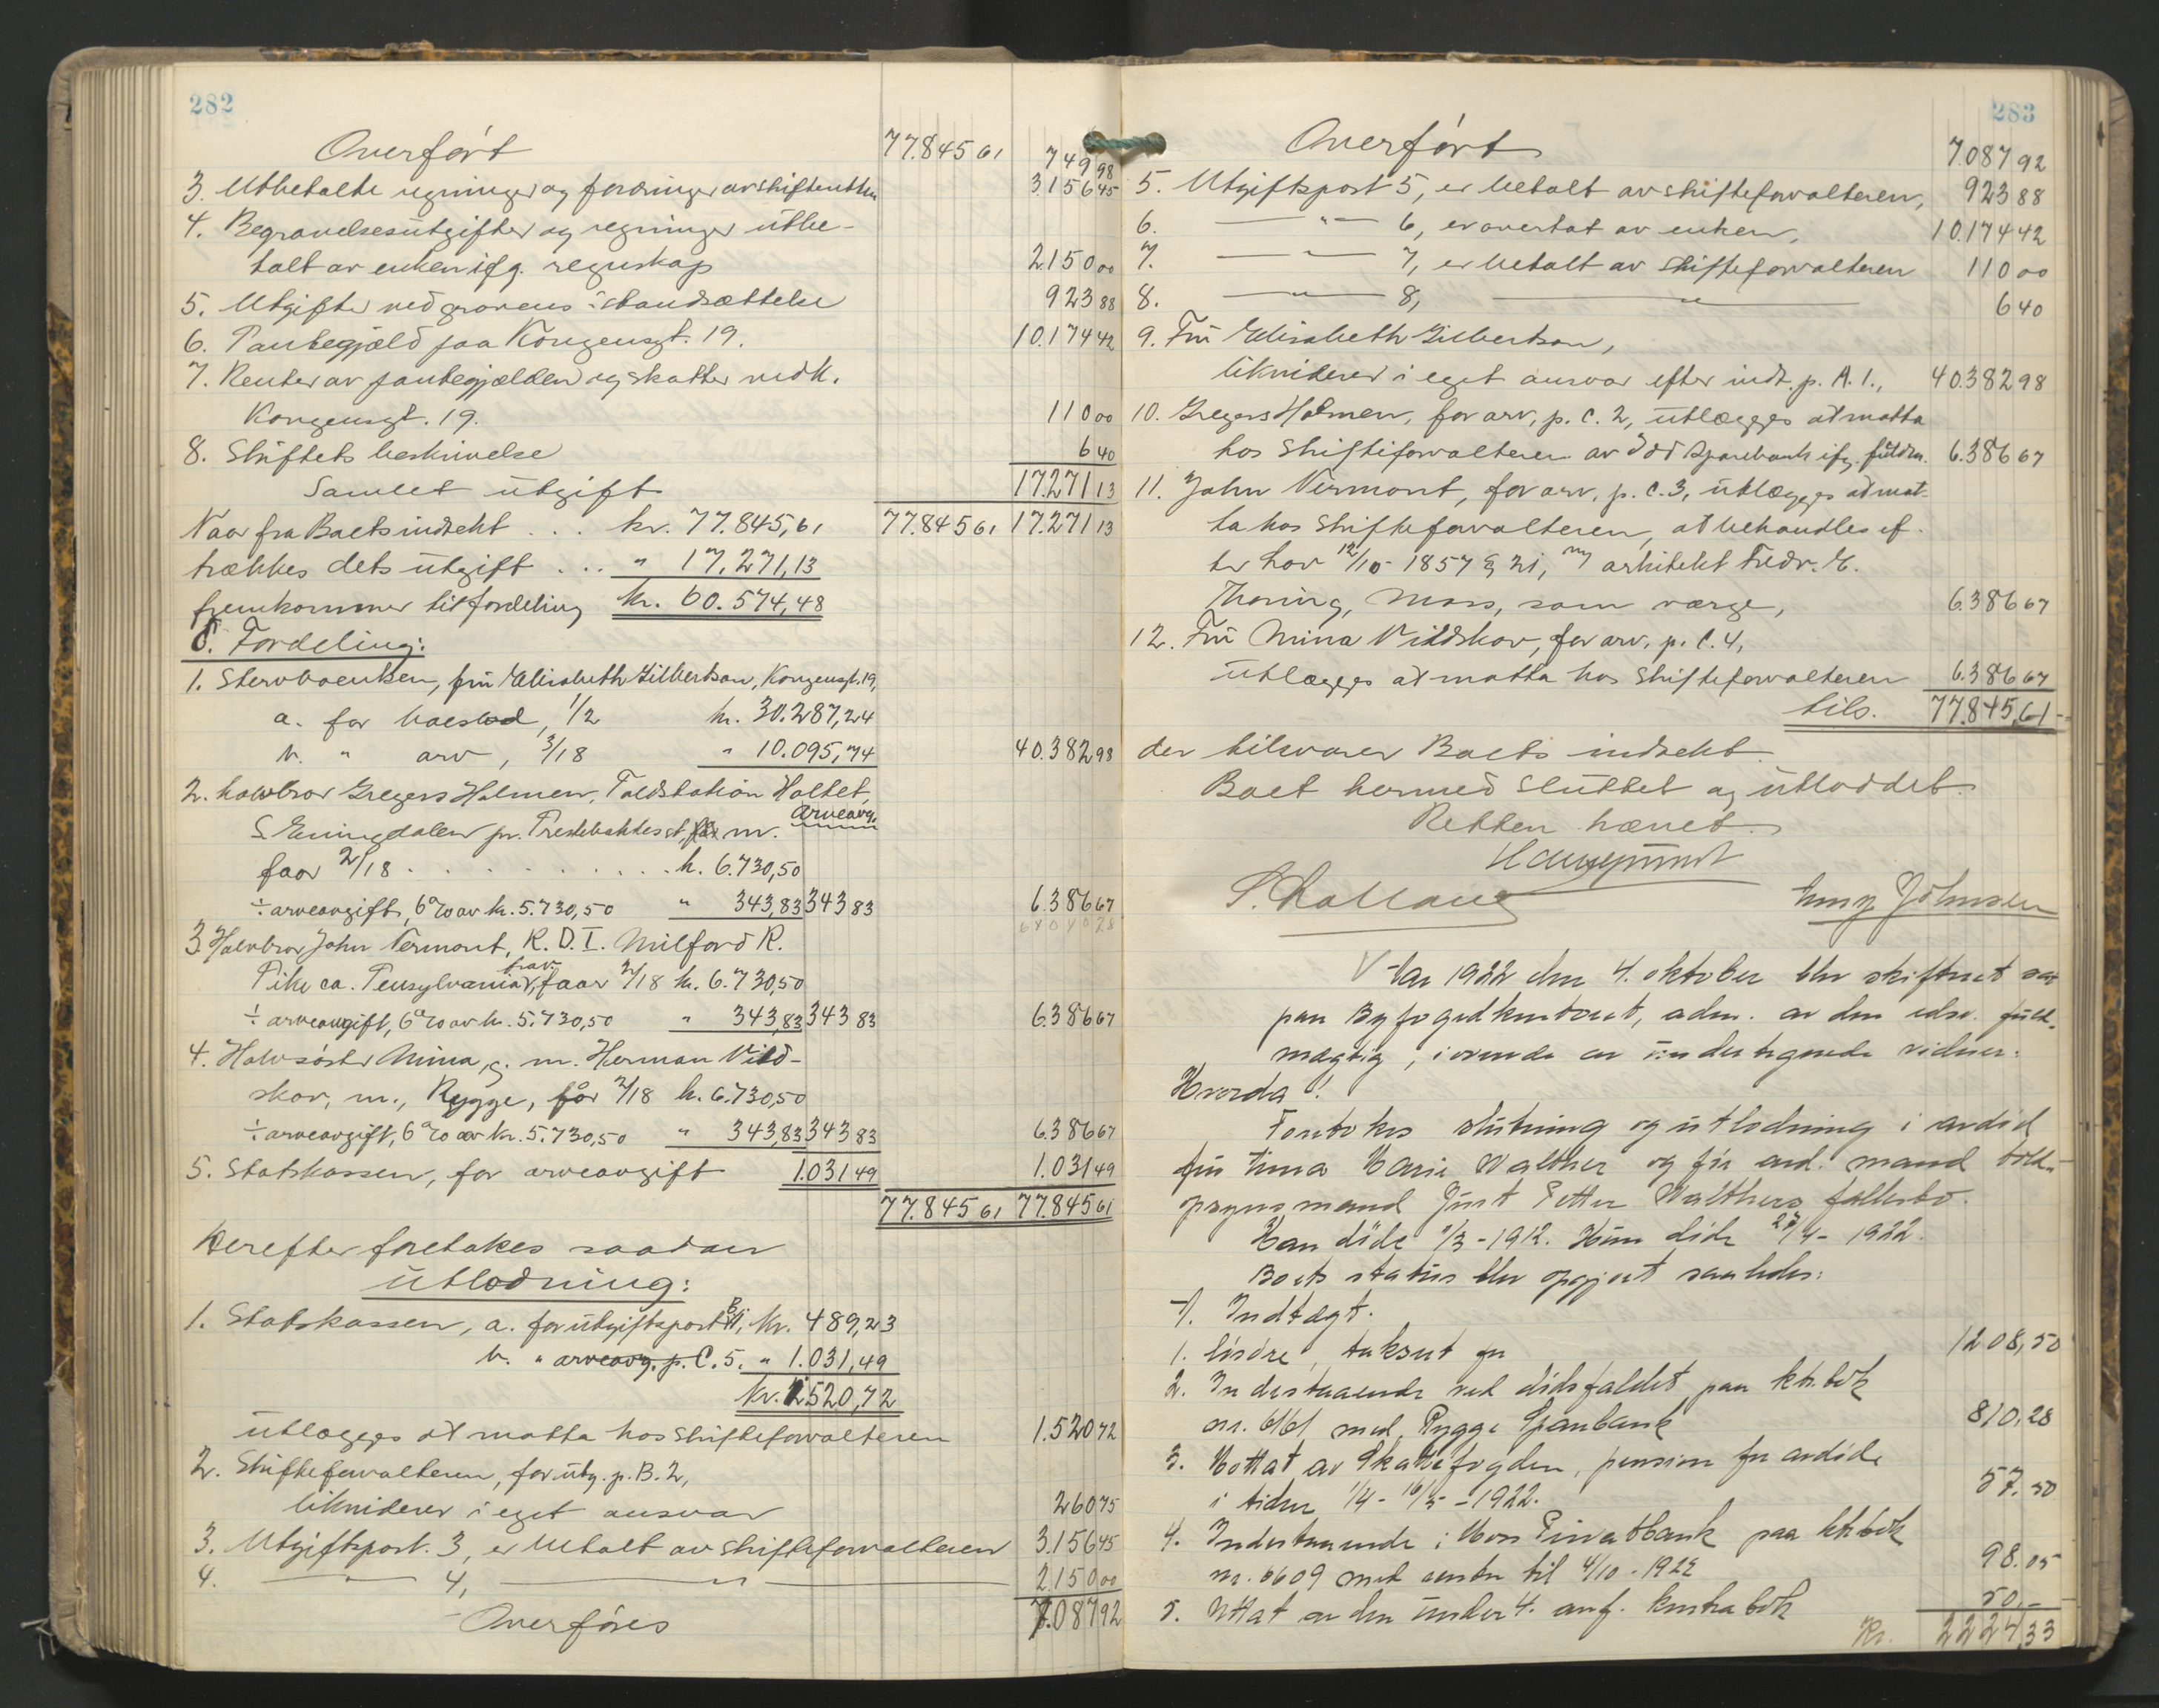 282
Overført 77.845 61 749 98
3. Utbetalte regninger og fordringer av skifteretten 3.156 45
4. Begravelsesutgifter og regninger utbe-
talt av enken ifg. regnskap 2.150 00
5. Utgifter ved gravens istandsættelse 923 88
6. Pantegjæld paa Kongensgt. 19. 10.174 42
7. Renter av pantegjælden og skatter vedk.
Kongensgt. 19. 110 00
8. Skiftets beskrivelse 6 40
Samlet utgift 17.271 13
Naar fra Boets indtekt . . . kr. 77.845,61 77.845 61 17.271 13
trækkes dets utgift . . . " 17.271,13
fremkommer til fordeling kr. 60.574,48
C. Fordeling:
1. Stervboenken, fru Elisabeth Gilbertson, Kongensgt. 19,
a. for boeslod, 1/2 kr. 30.287,24
b. " arv, 3/18 " 10.095,74 40.382 98
2. halvbror Gregers Holmen, Toldstation Holtet,
S. Enningdalen pr. Prestebakke st. m. arveavg.
faar 2/18 . . . . . . . . kr. 6.730,50
÷ arveavgift, 6% av kr. 5.730,50 " 343,83 343 83 6.386 67
3. Halvbror John Vermont, R.D.I. Milford R.
Pike ca. Pensylvania, faar 2/18 kr. 6.730,50
÷ arveavgift, 6% av kr. 5.730,50 " 343,83 343 83 6.386 67
4. Halvsøster Mina, g. m. Herman Vild-
skov, m., Rygge, får 2/18 kr. 6.730,50
÷ arveavgift, 6% av kr. 5.730,50 " 343,83 343 83 6.386 67
5. Statskassen, for arveavgift 1.031 49 1.031 49
77.845 61 77.845 61
Derefter foretakes saadan
utlodning:
1. Statskassen, a. for utgiftspost B 1, kr. 489,23
b. " arveavg. p. C. 5. " 1.031,49
kr. 1.520,72
utlægges at motta hos skifteforvalteren 1.520 72
2. Skifteforvalteren, for utg. p. B. 2,
likviderer i eget ansvar 260 75
3. Utgiftspost. 3, er betalt av skifteforvalteren 3.156 45
4. — " — 4, — " — 2.150 00
Overføres 7.087 92
283
Overført 7.087 92
5. Utgiftspost 5, er betalt av skifteforvalteren, 923 88
6. — " — 6, er overtat av enken, 10.174 42
7. — " — 7, er betalt av skifteforvalteren 110 00
8. — " — 8, — " — 6 40
9. Fru Elisabeth Gilbertson,
likviderer i eget ansvar efter indt. p. A. 1., 40.382 98
10. Gregers Holmen, for arv, p. C. 2, utlægges at motta
hos skifteforvalteren av Idd Sparebank ifg. fuldm. 6.386 67
11. John Vermont, for arv, p. C. 3, utlægges at mot-
ta hos skifteforvalteren, at behandles ef-
ter lov 12/10-1857 § 21, m/ arkitekt Fredr. E.
Thoring, Moss, som værge, 6.386 67
12. Fru Mina Vildskov, for arv, p. C. 4,
utlægges at motta hos skifteforvalteren 6.386 67
tils. 77.845,61
der tilsvarer Boets indtekt.
Boet hermed sluttet og utloddet.
Retten hævet.
Johnsen
Aar 1922 den 4. oktober blev skifteret sat
paa Byfogedkontoret, adm. av den edsv. fuld-
mægtig, i overvær av undertegnede vidner.
Hvorda!
Foretokes slutning og utlodning i avdød
fru Anna Marie Walther og før avd. mand
opsynsmand Just Petter Walthers fællesbo.
Han døde /3-1912. Hun døde 27/4-1922.
Boets status blev opgjort saaledes:
A. Indtægt.
1. løsøre, takseret for 1208,50
2. Indestaaende ved dødsfaldet paa ktr.bok
nr. 6161 med Rygge Sparebank 810,28
3. Mottat av Skattefogden, pension for avdøde
i tiden 1/4-16/5-1922. 57.50
4. Indestaaende i Moss Privatbank paa ktr.bok
nr. 6609 med renter til 4/10-1922 98.05
5. Uttat av den under 4. anf. kontrabok 50,-
Kr. 2224,33